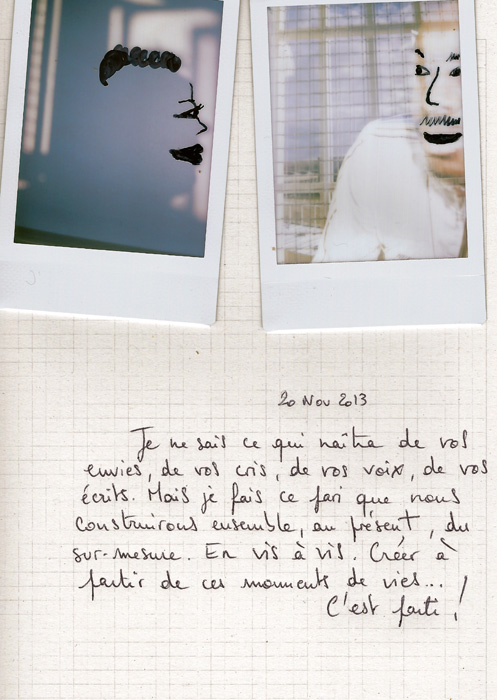 20 Nov 2013
Je ne sais ce qui naîtra de vos
envies, de vos cris, de vos voix, de vos
écrits. Mais je fais ce pari que nous
construirons ensemble, au présent, du
sur-mesure. En vis à vis. Créer à
partir de ces moments de vies...
C'est parti !